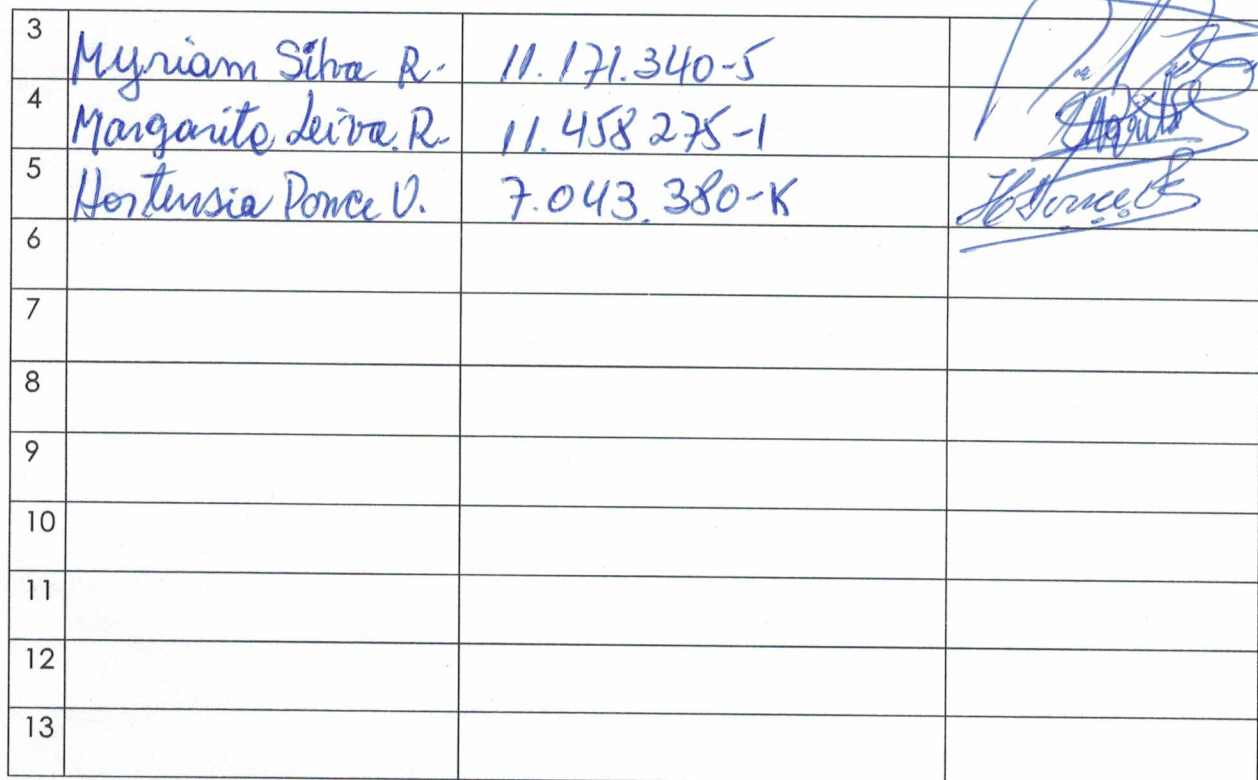 3 Myriam Silva R. 11.171.340-5
4 Margarita Leiva R. 11.458 275-1
5 Hortensia Ponce V. 7.043.380-K
6
7
8
9
10
11
12
13